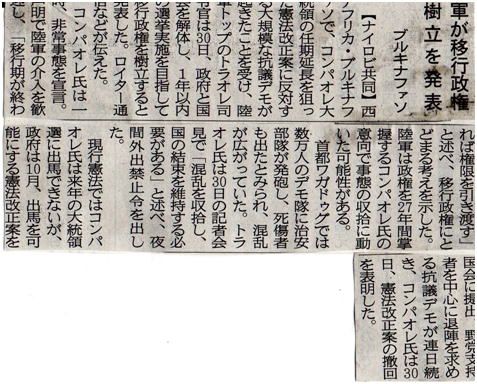 軍が移行政権
樹立を発表
ブルキナファソ
【ナイロビ共同】西
アフリカ・ブルキナファ
ソで、コンパオレ大
統領の任期延長を狙っ
た憲法改正案に反対す
る大規模な抗議デモが
起きたことを受け、陸
軍トップのトラオレ司
令官は30日、政府と国
会を解体し、1年以内
の選挙実施を目指して
移行政権を樹立すると
発表した。ロイター通
信などが伝えた。
コンパオレ氏は一
時、非常事態を宣言。
明で陸軍の介入を歓
迎し、「移行期が終わ
れば権限を引き渡す」
と述べ、移行政権にと
どまる考えを示した。
陸軍は政権を27年間掌
握するコンパオレ氏の
意向で事態の収拾に動
いた可能性がある。
首都ワガドゥグでは
数万人のデモ隊に治安
部隊が発砲し、死傷者
も出たとみられ、混乱
が広がっていた。トラ
オレ氏は30日の記者会
見で「混乱を収拾し、
国の結束を維持する必
要がある」と述べ、夜
間外出禁止令を出し
た。
現行憲法ではコンパ
オレ氏は来年の大統領
選に出馬できないが、
政府は10月、出馬を可
能にする憲法改正案を
国会に提出。野党支持
者を中心に退陣を求め
る抗議デモが連日続
き、コンパオレ氏は30
日、憲法改正案の撤回
を表明した。